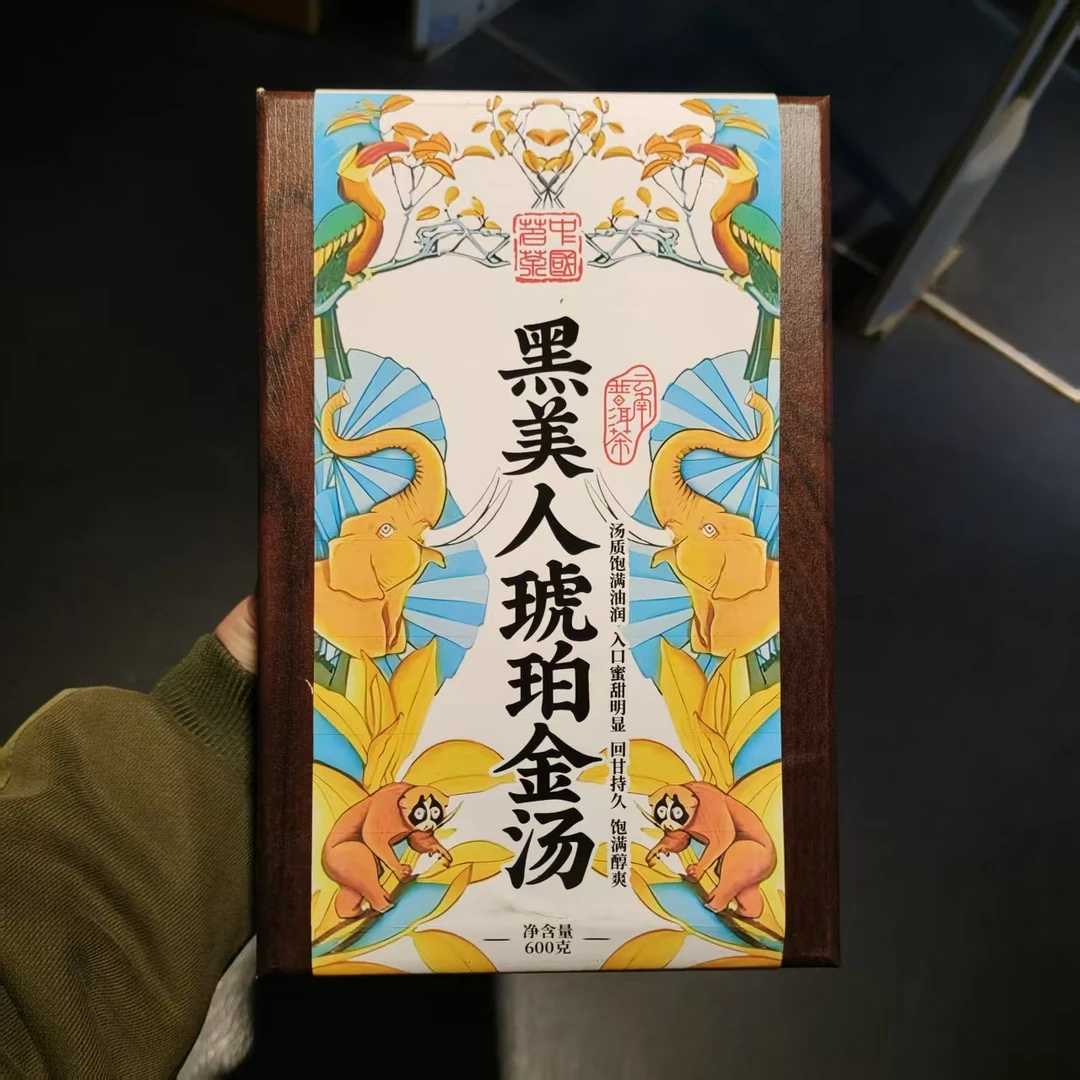 中國茗茶
黑美人琥珀金汤
云南普洱茶
汤质饱满油润 入口蜜甜明显 回甘持久 饱满醇爽
净含量
600克